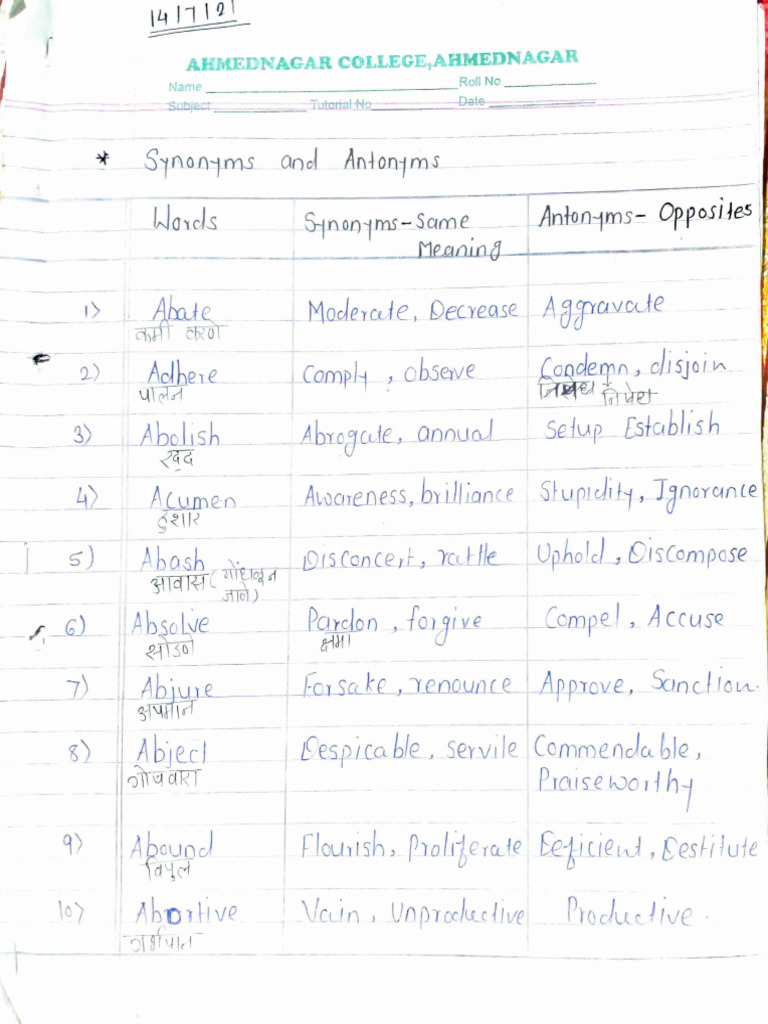 14/7/21
AHMEDNAGAR COLLEGE,AHMEDNAGAR
Name Roll No
Subject Tutorial No Date
* Synonyms and Antonyms
Words Synonyms-Same Meaning Antonyms- Opposites
1) Abate Moderate, Decrease Aggravate
कमी करणे
2) Adhere Comply, observe Condemn, disjoin
पालन निषेध
3) Abolish Abrogate, annual Setup Establish
रद्द
4) Acumen Awareness, brilliance Stupidity, Ignorance
हुशार
5) Abash Disconcert, rattle Uphold, Discompose
आवास (गोंधळून
जाणे)
6) Absolve Pardon, forgive Compel, Accuse
सोडणे क्षमा
7) Abjure Forsake, renounce Approve, Sanction.
अपमान
8) Abject Despicable, servile Commendable,
गोषवारा Praiseworthy
9) Abound Flourish, Proliferate Deficient, Destitute
विपुल
10) Abortive Vain, Unproductive Productive.
गर्भपात